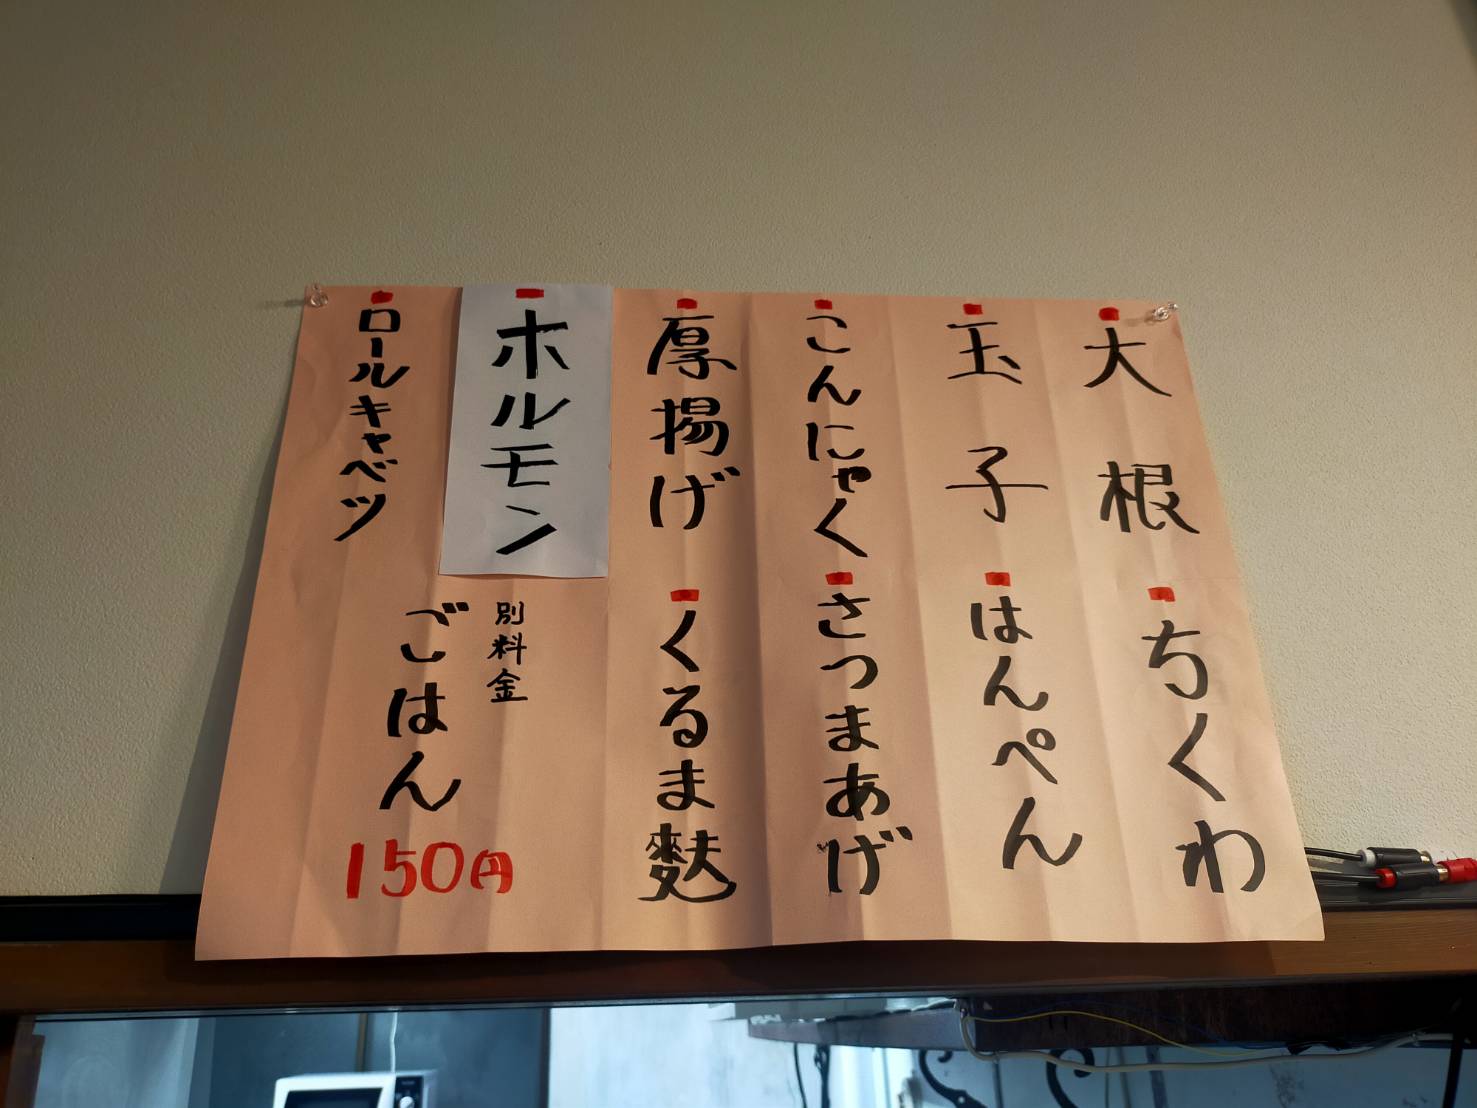 大根
ちくわ
玉子
はんぺん
こんにゃく
さつまあげ
厚揚げ
くるま麩
ホルモン
別料金
ごはん
150円
ロールキャベツ